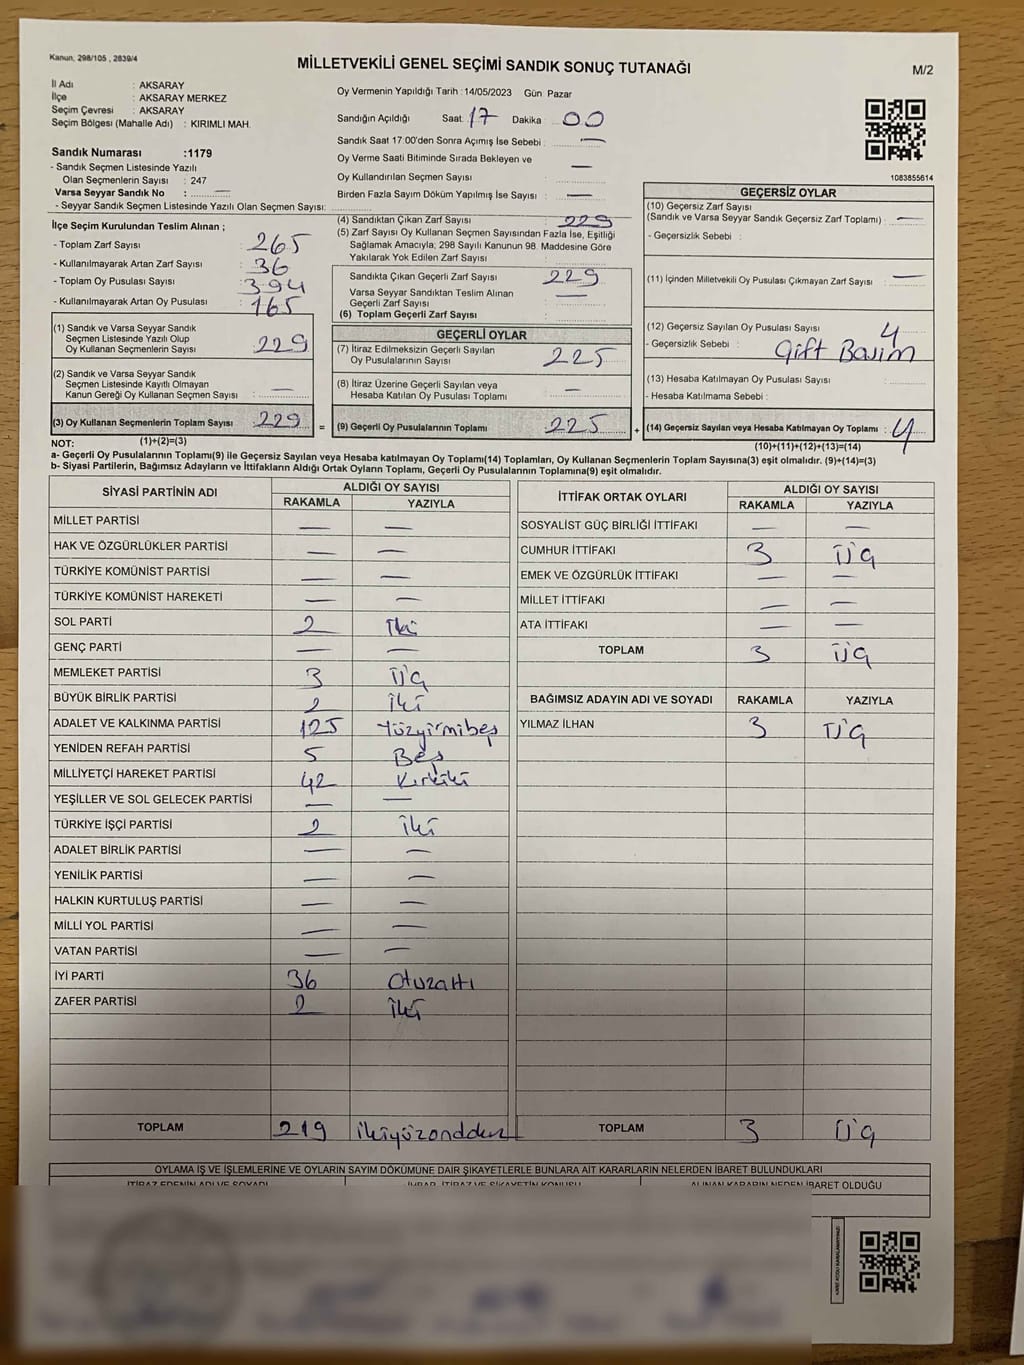 Kanun, 298/105 , 2839/4
MİLLETVEKİLİ GENEL SEÇİMİ SANDIK SONUÇ TUTANAĞI
M/2
İl Adı : AKSARAY
İlçe : AKSARAY MERKEZ
Seçim Çevresi : AKSARAY
Seçim Bölgesi (Mahalle Adı) : KIRIMLI MAH.
Sandık Numarası :1179
- Sandık Seçmen Listesinde Yazılı
Olan Seçmenlerin Sayısı : 247
Varsa Seyyar Sandık No : —
- Seyyar Sandık Seçmen Listesinde Yazılı Olan Seçmen Sayısı:
Oy Vermenin Yapıldığı Tarih :14/05/2023 Gün Pazar
Sandığın Açıldığı Saat: 17 Dakika 00
Sandık Saat 17:00'den Sonra Açımış İse Sebebi : —
Oy Verme Saati Bitiminde Sırada Bekleyen ve
Oy Kullandırılan Seçmen Sayısı : —
Birden Fazla Sayım Döküm Yapılmış İse Sayısı : —
1083855614
İlçe Seçim Kurulundan Teslim Alınan ;
- Toplam Zarf Sayısı : 265
- Kullanılmayarak Artan Zarf Sayısı : 36
- Toplam Oy Pusulası Sayısı : 394
- Kullanılmayarak Artan Oy Pusulası : 165
(1) Sandık ve Varsa Seyyar Sandık
Seçmen Listesinde Yazılı Olup
Oy Kullanan Seçmenlerin Sayısı : 229
(2) Sandık ve Varsa Seyyar Sandık
Seçmen Listesinde Kayıtlı Olmayan
Kanun Gereği Oy Kullanan Seçmen Sayısı : —
(3) Oy Kullanan Seçmenlerin Toplam Sayısı : 229 =
(4) Sandıktan Çıkan Zarf Sayısı : 229
(5) Zarf Sayısı Oy Kullanan Seçmen Sayısından Fazla İse, Eşitliği
Sağlamak Amacıyla; 298 Sayılı Kanunun 98. Maddesine Göre
Yakılarak Yok Edilen Zarf Sayısı :
Sandıkta Çıkan Geçerli Zarf Sayısı : 229
Varsa Seyyar Sandıktan Teslim Alınan
Geçerli Zarf Sayısı : —
(6) Toplam Geçerli Zarf Sayısı :
GEÇERLİ OYLAR
(7) İtiraz Edilmeksizin Geçerli Sayılan
Oy Pusulalarının Sayısı : 225
(8) İtiraz Üzerine Geçerli Sayılan veya
Hesaba Katılan Oy Pusulası Toplamı : —
(9) Geçerli Oy Pusulalarının Toplamı : 225 +
GEÇERSİZ OYLAR
(10) Geçersiz Zarf Sayısı
(Sandık ve Varsa Seyyar Sandık Geçersiz Zarf Toplamı) : —
- Geçersizlik Sebebi :
(11) İçinden Milletvekili Oy Pusulası Çıkmayan Zarf Sayısı : —
(12) Geçersiz Sayılan Oy Pusulası Sayısı : 4
- Geçersizlik Sebebi : Çift Basım
(13) Hesaba Katılmayan Oy Pusulası Sayısı :
- Hesaba Katılmama Sebebi :
(14) Geçersiz Sayılan veya Hesaba Katılmayan Oy Toplamı : 4
NOT: (1)+(2)=(3)
(10)+(11)+(12)+(13)=(14)
a- Geçerli Oy Pusulalarının Toplamı(9) ile Geçersiz Sayılan veya Hesaba katılmayan Oy Toplamı(14) Toplamları, Oy Kullanan Seçmenlerin Toplam Sayısına(3) eşit olmalıdır. (9)+(14)=(3)
b- Siyasi Partilerin, Bağımsız Adayların ve İttifakların Aldığı Ortak Oyların Toplamı, Geçerli Oy Pusulalarının Toplamına(9) eşit olmalıdır.
SİYASİ PARTİNİN ADI ALDIĞI OY SAYISI
RAKAMLA YAZIYLA
MİLLET PARTİSİ — —
HAK VE ÖZGÜRLÜKLER PARTİSİ — —
TÜRKİYE KOMÜNİST PARTİSİ — —
TÜRKİYE KOMÜNİST HAREKETİ — —
SOL PARTİ 2 İki
GENÇ PARTİ — —
MEMLEKET PARTİSİ 3 Üç
BÜYÜK BİRLİK PARTİSİ 2 İki
ADALET VE KALKINMA PARTİSİ 125 Yüzyirmibeş
YENİDEN REFAH PARTİSİ 5 Beş
MİLLİYETÇİ HAREKET PARTİSİ 42 Kırkiki
YEŞİLLER VE SOL GELECEK PARTİSİ — —
TÜRKİYE İŞÇİ PARTİSİ 2 İki
ADALET BİRLİK PARTİSİ — —
YENİLİK PARTİSİ — —
HALKIN KURTULUŞ PARTİSİ — —
MİLLİ YOL PARTİSİ — —
VATAN PARTİSİ — —
İYİ PARTİ 36 Otuzaltı
ZAFER PARTİSİ 2 İki
TOPLAM 219 ikiyüzondokuz
İTTİFAK ORTAK OYLARI ALDIĞI OY SAYISI
RAKAMLA YAZIYLA
SOSYALİST GÜÇ BİRLİĞİ İTTİFAKI — —
CUMHUR İTTİFAKI 3 Üç
EMEK VE ÖZGÜRLÜK İTTİFAKI — —
MİLLET İTTİFAKI — —
ATA İTTİFAKI — —
TOPLAM 3 Üç
BAĞIMSIZ ADAYIN ADI VE SOYADI RAKAMLA YAZIYLA
YILMAZ İLHAN 3 Üç
TOPLAM 3 Üç
OYLAMA İŞ VE İŞLEMLERİNE VE OYLARIN SAYIM DÖKÜMÜNE DAİR ŞİKAYETLERLE BUNLARA AİT KARARLARIN NELERDEN İBARET BULUNDUKLARI
İTİRAZ EDENİN ADI VE SOYADI İHBAR, İTİRAZ VE ŞİKAYETİN KONUSU ALINAN KARARIN NEDEN İBARET OLDUĞU